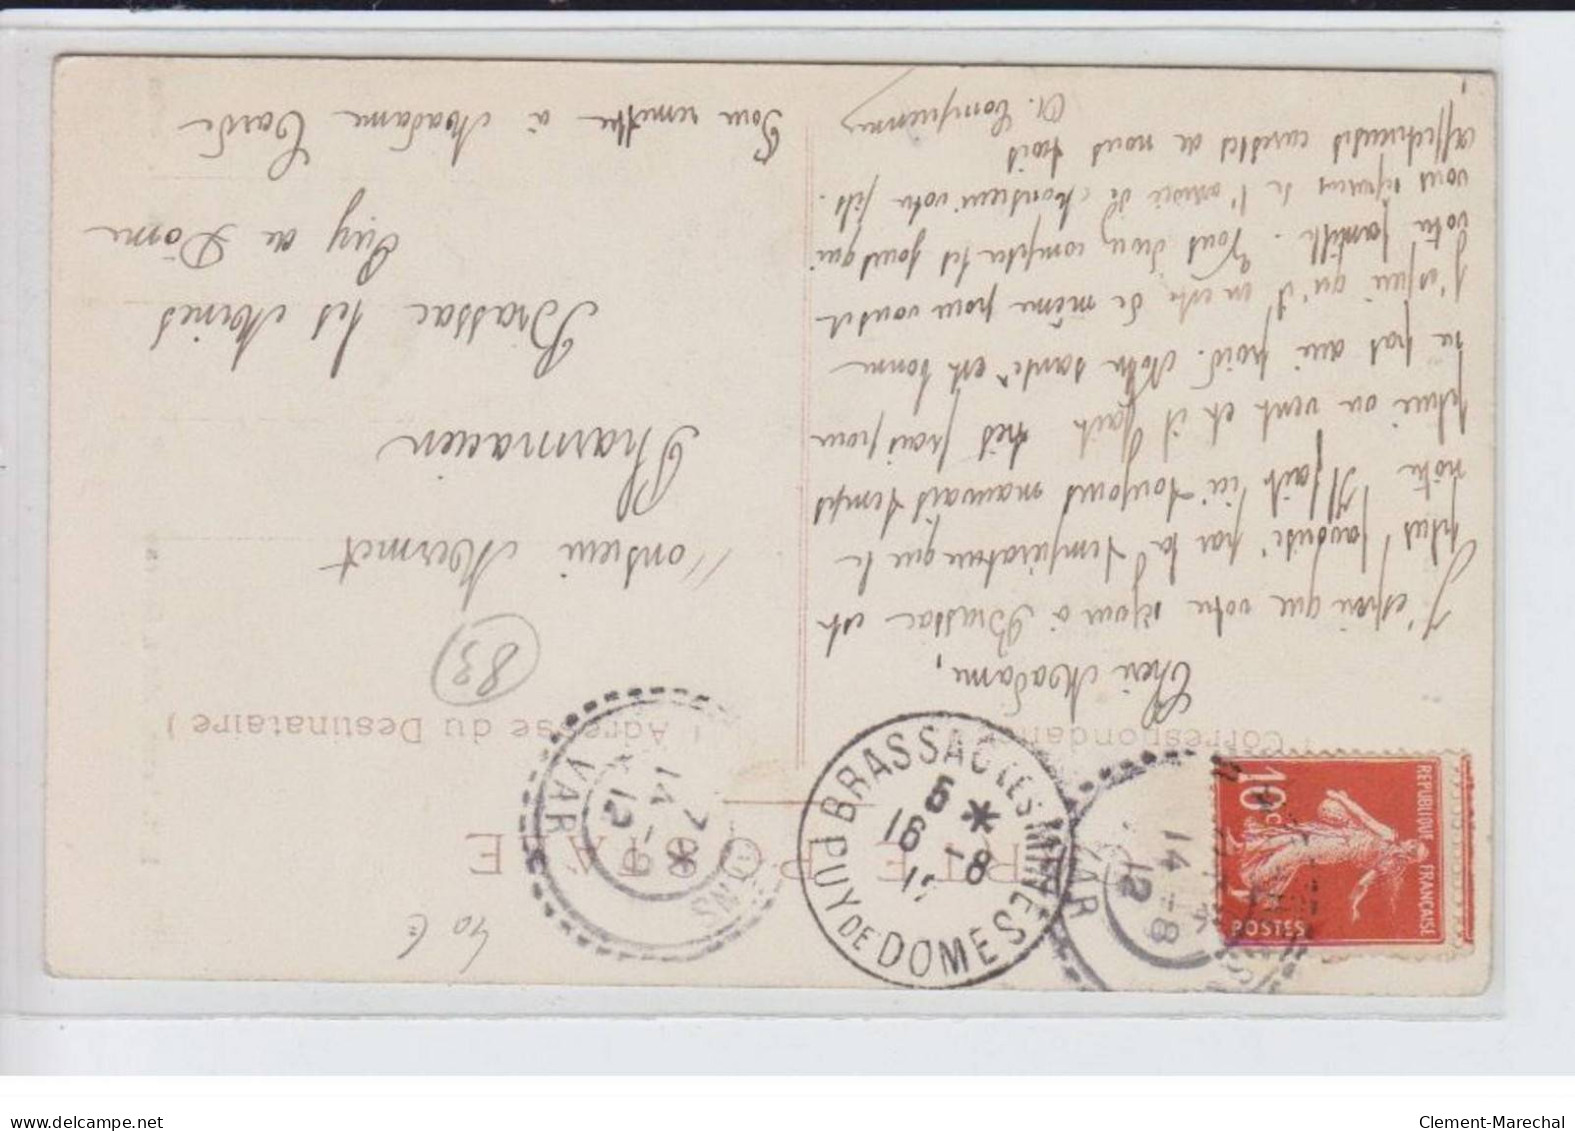 CARTE POSTALE
( Correspondance
( Adresse du Destinataire )
Chère Madame,
J'espère que votre séjour à Brassac est
plus favorisé par la température que le
nôtre. Il fait ici toujours mauvais temps
pluie ou vent et il fait très frais pour
ne pas dire froid. Notre santé est bonne
j'espère qu'il en est de même pour vous et
votre famille. Vous devez compter les jours qui
vous séparent de l'arrivée de Monsieur votre fils.
affectueuses caresses de nous trois
Monsieur Mermet
Pharmacien
Brassac les Mines
Puy de Dôme
Pour remettre à Madame
83
40 €
REPUBLIQUE FRANÇAISE
10c
POSTES
BRASSAC LES MINES
PUY DE DOME
5 *
16 -8
VAR
14 -8
12
VAR
delcampe.net
Clement-Marechal